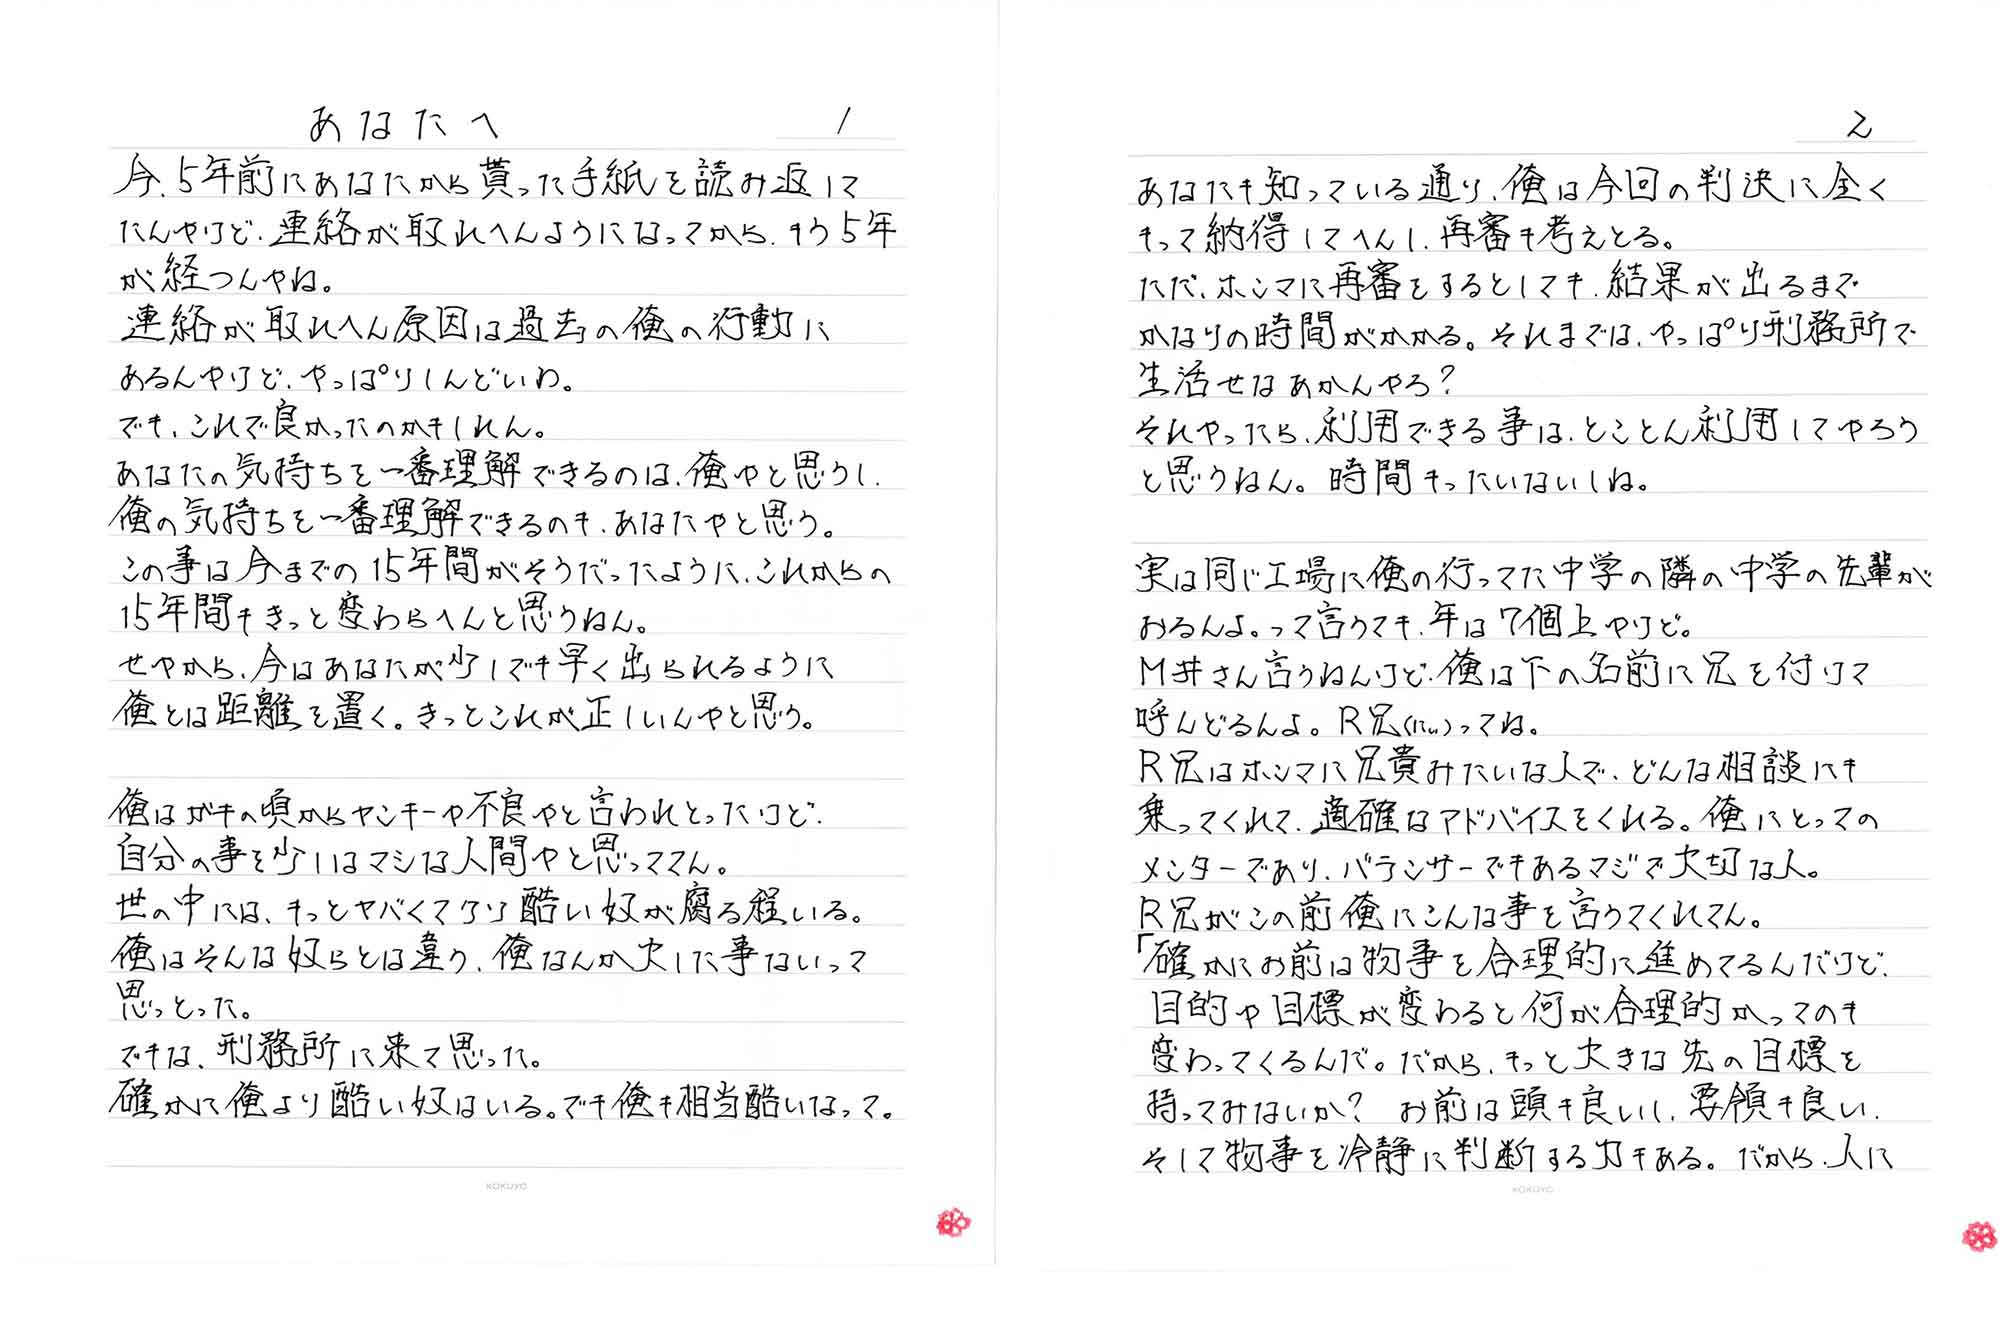 あなたへ
1
今、5年前にあなたから貰った手紙を読み返して
たんやけど、連絡が取れへんようになってから、もう5年
が経つんやね。
連絡が取れへん原因は過去の俺の行動に
あるんやけど、やっぱりしんどいわ。
でも、これで良かったのかもしれん。
あなたの気持ちを一番理解できるのは、俺やと思うし、
俺の気持ちを一番理解できるのも、あなたやと思う。
この事は今までの15年間がそうだったように、これからの
15年間もきっと変わらへんと思うねん。
せやから、今はあなたが少しでも早く出られるように
俺とは距離を置く。きっとこれが正しいんやと思う。
俺はガキの頃からヤンキーや不良やと言われとったけど、
自分の事を少しはマシな人間やと思っててん。
世の中には、もっとヤバくてクソ酷い奴が腐る程いる。
俺はそんな奴らとは違う、俺なんか大した事ないって
思っとった。
でもな、刑務所に来て思った。
確かに俺より酷い奴はいる。でも俺も相当酷いなって。
KOKUYO
2
あなたも知っている通り、俺は今回の判決に全く
もって納得してへんし、再審も考えとる。
ただ、ホンマに再審をするとしても、結果が出るまで
かなりの時間がかかる。それまでは、やっぱり刑務所で
生活せなあかんやろ?
それやったら、利用できる事は、とことん利用してやろう
と思うねん。時間もったいないしね。
実は同じ工場に俺の行ってた中学の隣の中学の先輩が
おるんよ。って言うても、年は7個上やけど。
M井さん言うねんけど、俺は下の名前に兄を付けて
呼んどるんよ。R兄(にい)ってね。
R兄はホンマに兄貴みたいな人で、どんな相談にも
乗ってくれて、適確なアドバイスをくれる。俺にとっての
メンターであり、バランサーでもあるマジで大切な人。
R兄がこの前俺にこんな事を言うてくれてん。
「確かにお前は物事を合理的に進めてるんだけど、
目的や目標が変わると何が合理的かってのも
変わってくるんだ。だから、もっと大きな先の目標を
持ってみないか? お前は頭も良いし、要領も良い、
そして物事を冷静に判断する力もある。だから、人に
KOKUYO